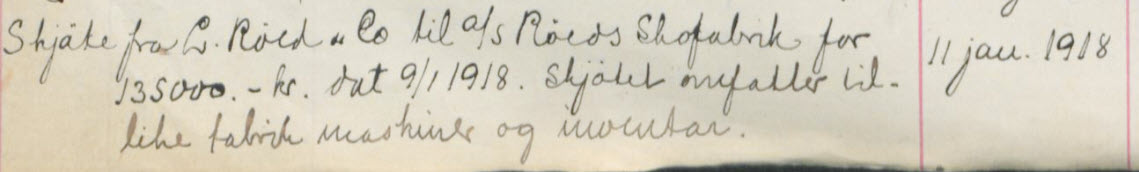 Skjöte fra L. Röed & Co til a/s Röeds Skofabrik for 11 jan. 1918
135000.- kr. dat 9/1 1918. Skjötet omfatter til-
like fabrik maskiner og inventar.